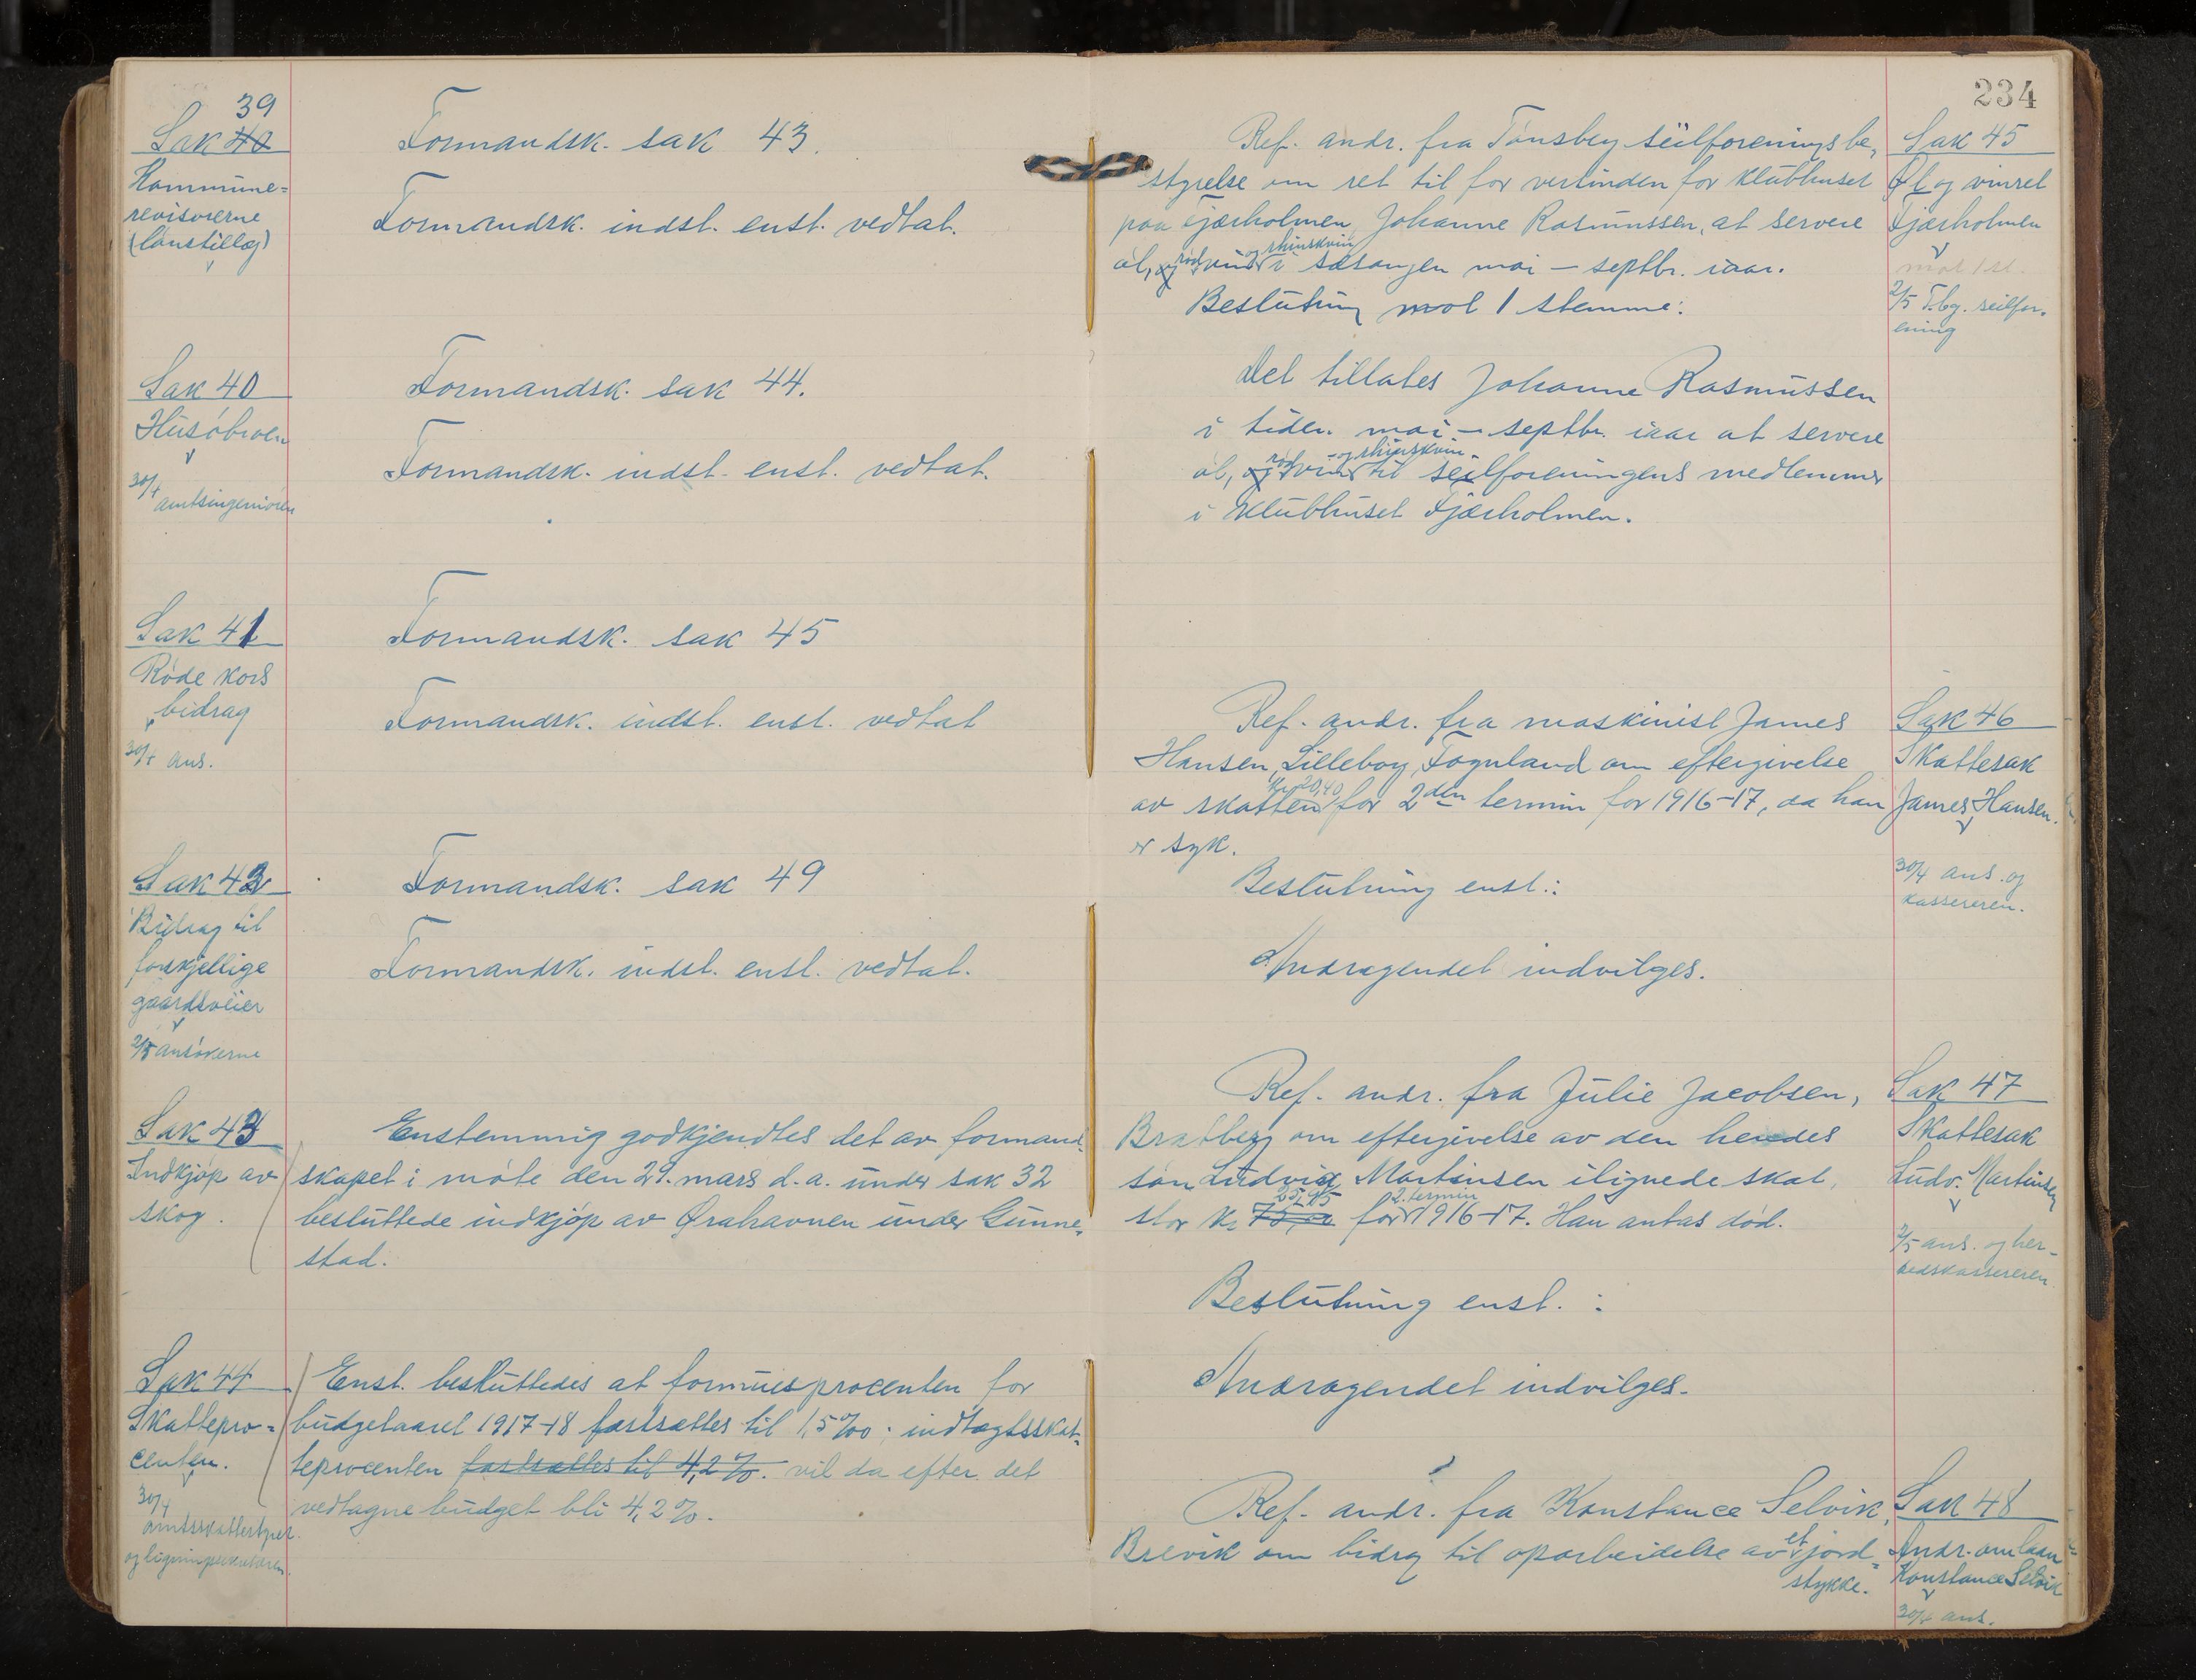 39
Sak 40
Kommune=
revisorerne
(lønstillæg)
Formandsk. sak 43.
Formandsk. indst. enst. vedtat.
Sak 40
Husøbroen
30/4 amtsingeniøren
Formandsk. sak 44.
Formandsk. indst. enst. vedtat.
Sak 41
Røde Kors
bidrag
30/4 ans.
Formandsk. sak 45
Formandsk. indst. enst. vedtat
Sak 42
Bidrag til
forskjellige
gaardsveier
2/5 ansøkerne
Formandsk. sak 49
Formandsk. indst. enst. vedtat.
Sak 43
Indkjøp av
skog.
Enstemmig godkjendtes det av formand=
skapet i møte den 29. mars d.a. under sak 32
besluttede indkjøp av Ørahavnen under Gunne=
stad.
Sak 44
Skattepro=
centen.
30/4
amtsskattestyret
og ligningssekretæren.
Enst. besluttedes at formuesprocenten for
budgetaaret 1917-18 fastsættes til 1,5 ‰; indtægtsskat=
teprocenten fastsættes til 4,2 %. vil da efter det
vedtagne budget bli 4,2 %.
234
Ref. andr. fra Tønsberg seilforenings be=
styrelse om ret til for vertinden for klubhuset
paa Fjærholmen, Johanne Rasmussen, at servere
øl, og rødvin og rhinskvin i sæsongen mai – septbr. iaar.
Beslutning mot 1 stemme:
Det tillates Johanne Rasmussen
i tiden mai – septbr. iaar at servere
øl, og rødvin og rhinskvin til seilforeningens medlemmer
i klubhuset Fjærholmen.
Sak 45
Øl og vinret
Fjærholmen
mot 1 st.
2/5 T.bg. seilfor=
ening
Ref. andr. fra maskinist James
Hansen, Lilleborg, Tognland om eftergivelse
av skatten kr. 20,40 for 2den termin for 1916-17, da han
er syk.
Beslutning enst.:
Andragendet indvilges.
Sak 46
Skattesak
James Hansen.
30/4 ans. og
kassereren.
Ref. andr. fra Julie Jacobsen,
Bratberg om eftergivelse av den hendes
søn Ludvig Martinsen ilignede skat,
stor kr. 25,95 for 2. termin 1916-17. Han antas død.
Beslutning enst.:
Andragendet indvilges.
Sak 47
Skattesak
Ludv. Martinsen
2/5 ans. og her-
redskassereren.
Ref. andr. fra Konstance Selvik,
Brevik om bidrag til oparbeidelse av et jord=
stykke.
Sak 48
Andr. om laan
Konstance Selvik
30/4 ans.